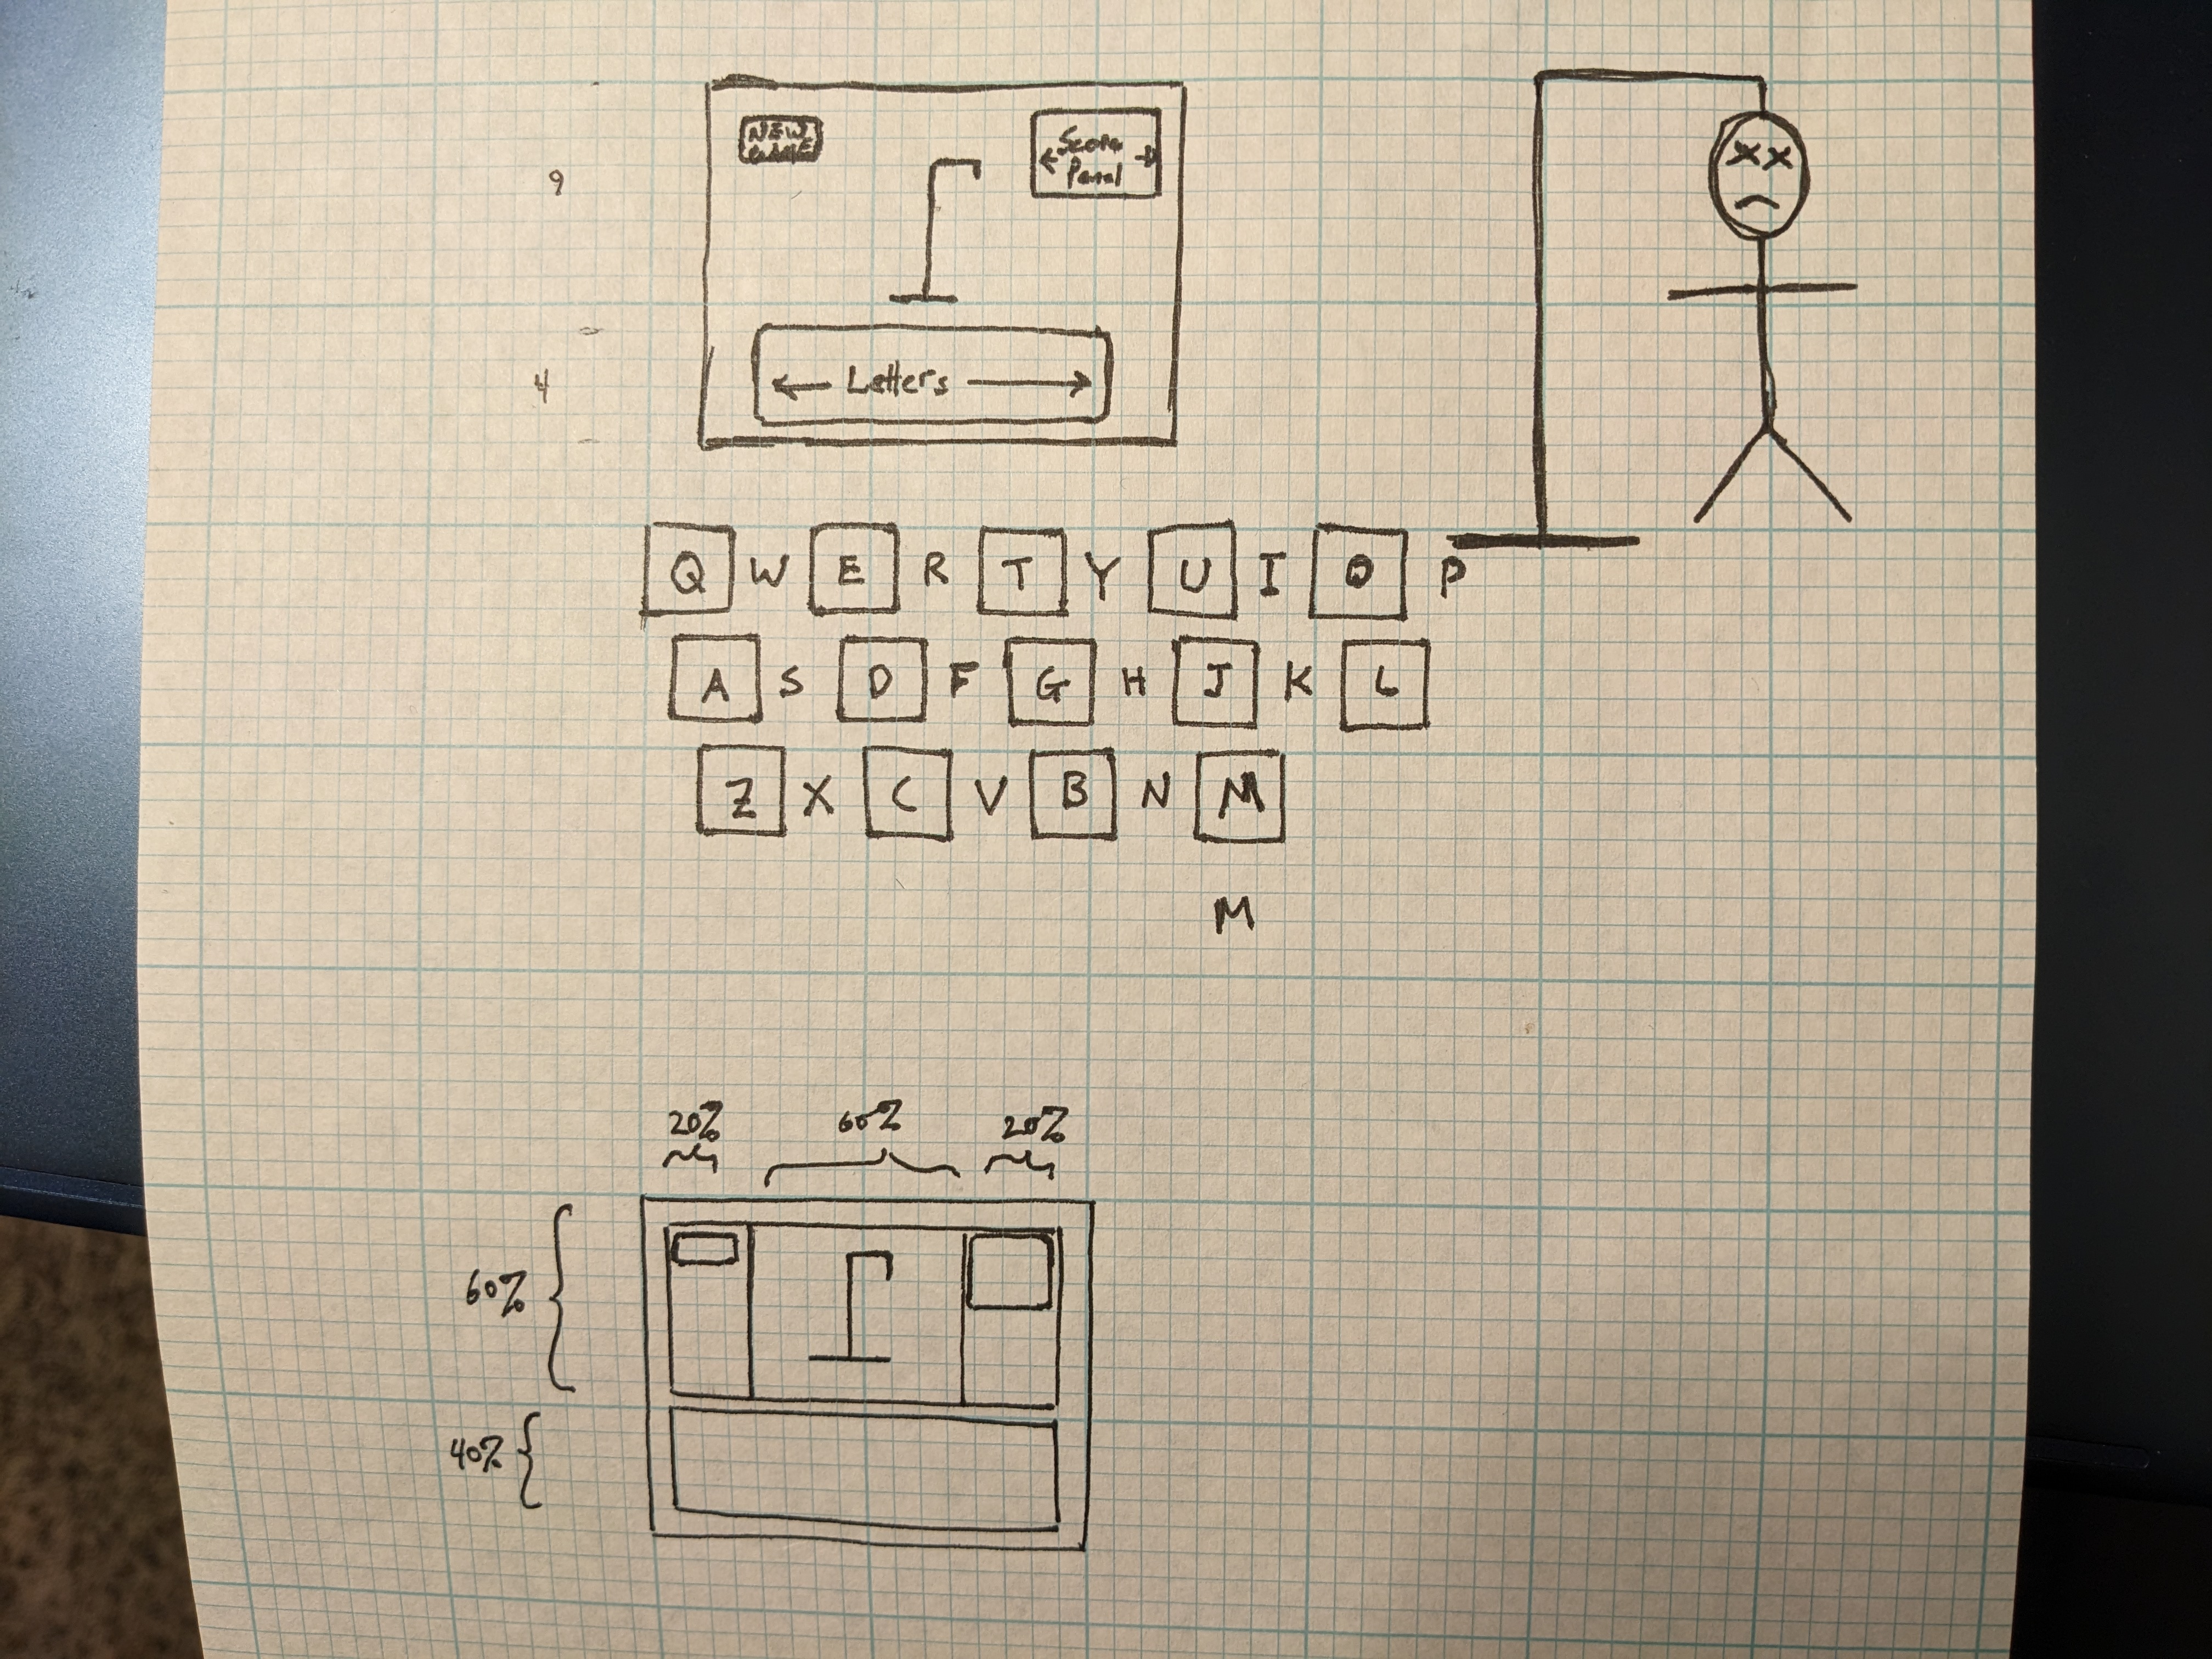 NEW
GAME
Score
Panel
9
4
Letters
Q W E R T Y U I O P
A S D F G H J K L
Z X C V B N M
M
20% 60% 20%
60%
40%